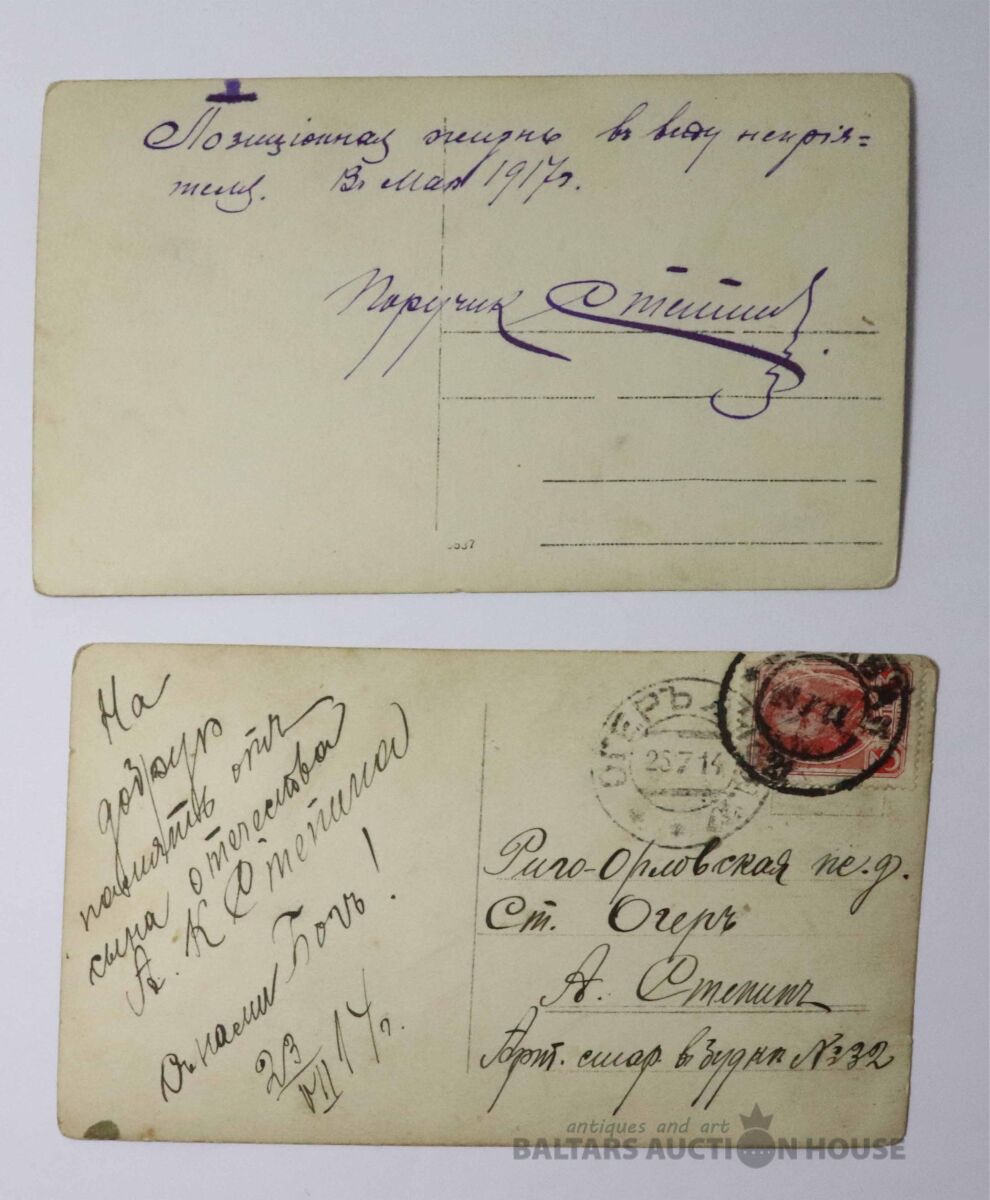 Позиціонная жизнь въ виду непрія=
теля. Въ Маѣ 1917г.
Поручик Степин
5537
На
добрую
память отъ
сына отечества
А. К Степина
Съ нами Богъ!
23/VII 14 г.
ОГЕРЪ
26 7 14
Риго-Орловская же.д.
Ст. Огеръ
А. Степинъ
Арт. стар. в будкѣ №232
antiques and art
BALTARS AUCTION HOUSE